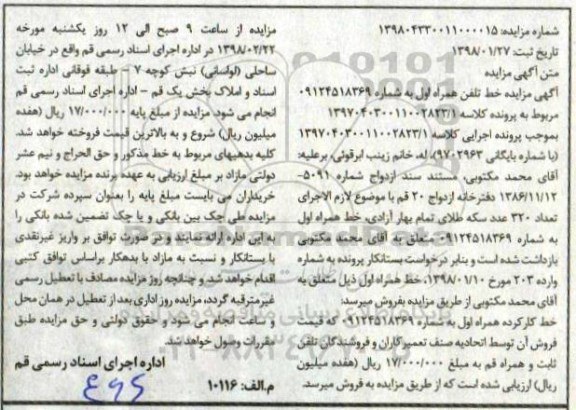 شماره مزایده: ۱۳۹۸۰۴۳۳۰۰۱۱۰۰۰۰۱۵
تاریخ ثبت: ۱۳۹۸/۰۱/۲۷
متن آگهی مزایده
آگهی مزایده خط تلفن همراه اول به شماره ۰۹۱۲۴۵۱۸۳۶۹
مربوط به پرونده کلاسه ۱۳۹۷۰۴۰۳۰۰۱۱۰۰۲۸۲۳/۱
بموجب پرونده اجرایی کلاسه ۱۳۹۷۰۴۰۳۰۰۱۱۰۰۲۸۲۳/۱
(با شماره بایگانی ۹۷۰۲۹۶۳)، له، خانم زینب ابرقوئی، برعلیه:
آقای محمد مکتوبی، مستند سند ازدواج شماره ۵۰۹۱-
۱۳۸۶/۱۱/۱۲ دفترخانه ازدواج ۲۰ قم با موضوع لازم الاجرای
تعداد ۳۲۰ عدد سکه طلای تمام بهار آزادی، خط همراه اول
به شماره ۰۹۱۲۴۵۱۸۳۶۹ متعلق به آقای محمد مکتوبی
بازداشت شده است و بنابر درخواست بستانکار پرونده به شماره
وارده ۲۰۳ مورخ ۱۳۹۸/۰۱/۱۰، خط همراه اول ذیل متعلق به
آقای محمد مکتوبی از طریق مزایده بفروش میرسد:
خط کارکرده همراه اول به شماره ۰۹۱۲۴۵۱۸۳۶۹ که قیمت
فروش آن توسط اتحادیه صنف تعمیرکاران و فروشندگان تلفن
ثابت و همراه قم به مبلغ ۱۷/۰۰۰/۰۰۰ ریال (هفده میلیون
ریال) ارزیابی شده است که از طریق مزایده به فروش میرسد.
مزایده از ساعت ۹ صبح الی ۱۲ روز یکشنبه مورخه
۱۳۹۸/۰۲/۲۲ در اداره اجرای اسناد رسمی قم واقع در خیابان
ساحلی (لواسانی) نبش کوچه ۷ - طبقه فوقانی اداره ثبت
اسناد و املاک بخش یک قم - اداره اجرای اسناد رسمی قم
انجام می شود. مزایده از مبلغ پایه ۱۷/۰۰۰/۰۰۰ ریال (هفده
میلیون ریال) شروع و به بالاترین قیمت فروخته خواهد شد.
کلیه بدهیهای مربوط به خط مذکور و حق الحراج و نیم عشر
دولتی مازاد بر مبلغ ارزیابی به عهده برنده مزایده خواهد بود.
خریداران می بایست مبلغ پایه را بعنوان سپرده شرکت در
مزایده طی چک بین بانکی و یا چک تضمین شده بانکی را
به این اداره ارائه نمایند و در صورت توافق بر واریز غیرنقدی
با بستانکار و نسبت به مازاد با بدهکار براساس توافق کتبی
اقدام خواهد شد و چنانچه روز مزایده مصادف با تعطیل رسمی
غیرمترقبه گردد، مزایده روز اداری بعد از تعطیل در همان محل
و ساعت انجام می شود و حقوق دولتی و حق مزایده طبق
مقررات وصول خواهد شد.
اداره اجرای اسناد رسمی قم
م.الف: ۱۰۱۱۶